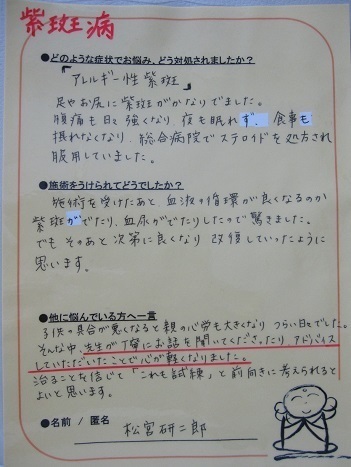 紫斑病
●どのような症状でお悩み、どう対処されましたか?
「アレルギー性紫斑」
足やお尻に紫斑がかなりでました。
腹痛も日々強くなり、夜も眠れず、食事も
摂れなくなり、総合病院でステロイドを処方され
服用していました。
●施術をうけられてどうでしたか?
施術を受けたあと、血液の循環が良くなるのか
紫斑がでたり、血尿がでたりしたので驚きました。
でもそのあと次第に良くなり 改善していったように
思います。
●他に悩んでいる方へ一言
子供の具合が悪くなると親の心労も大きくなり つらい日々でした。
そんな中、先生が丁寧にお話を聞いてくださったり、アドバイス
していただいたことで心が軽くなりました。
治ることを信じて「これも試練」と前向きに考えられると
よいと思います。
●名前 / 匿名
松宮研二郎